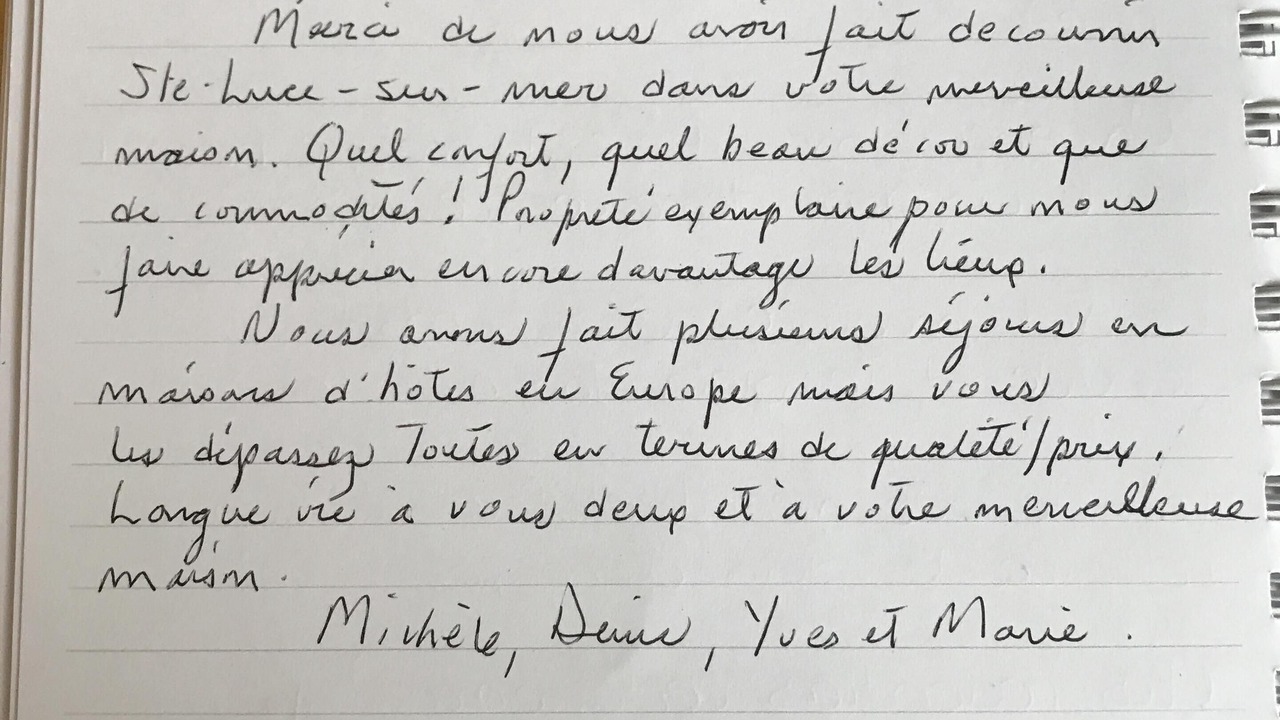 Merci de nous avoir fait decouvrir
Ste-Luce-sur-mer dans votre merveilleuse
maison. Quel confort, quel beau décor et que
de commodités! Propreté exemplaire pour nous
faire apprécier encore davantage les lieux.
Nous avons fait plusieurs séjours en
maisons d'hôtes en Europe mais vous
les dépassez toutes en termes de qualité/prix.
Longue vie à vous deux et à votre merveilleuse
maison.
Michèle, Denis, Yves et Marie.